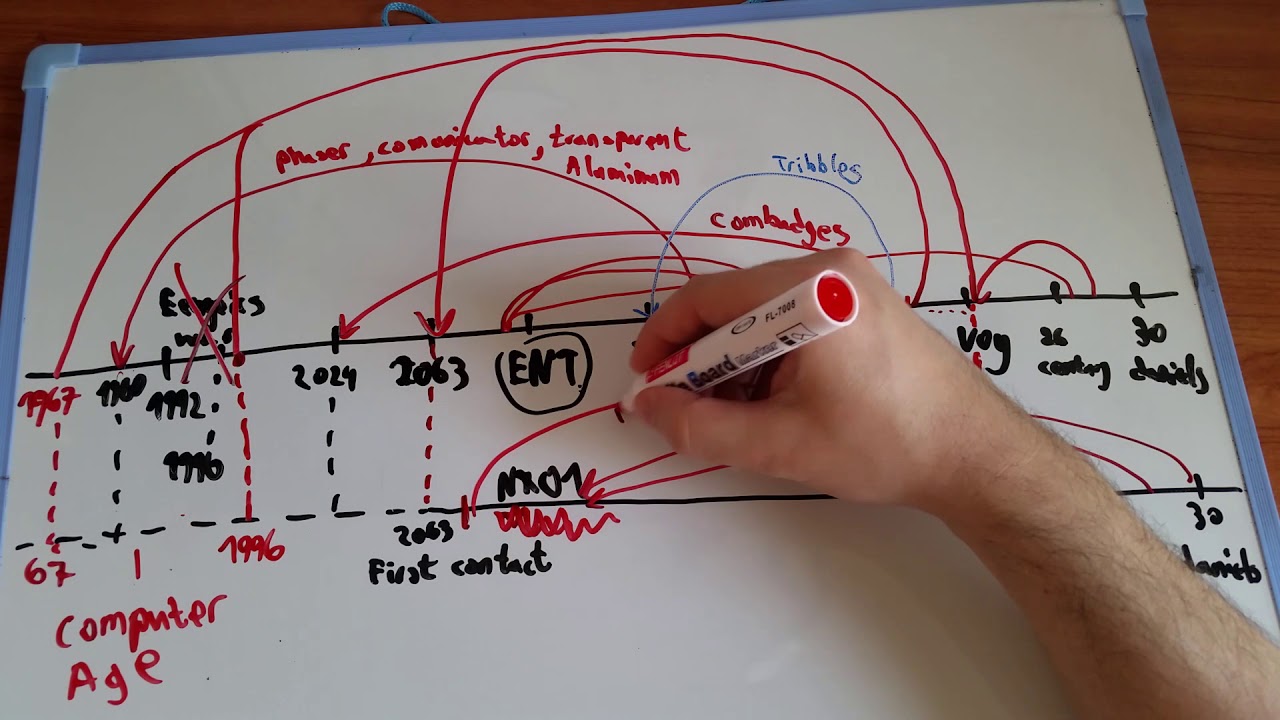 phaser, comonicator, transparent
Aluminum
Tribbles
combadges
Eugenics
1967
1992
1996
2024
2063
ENT
VOY
26
century
30
daniels
FL-7008
Board
NX01
67
1996
2063
First contact
30
Computer
Age